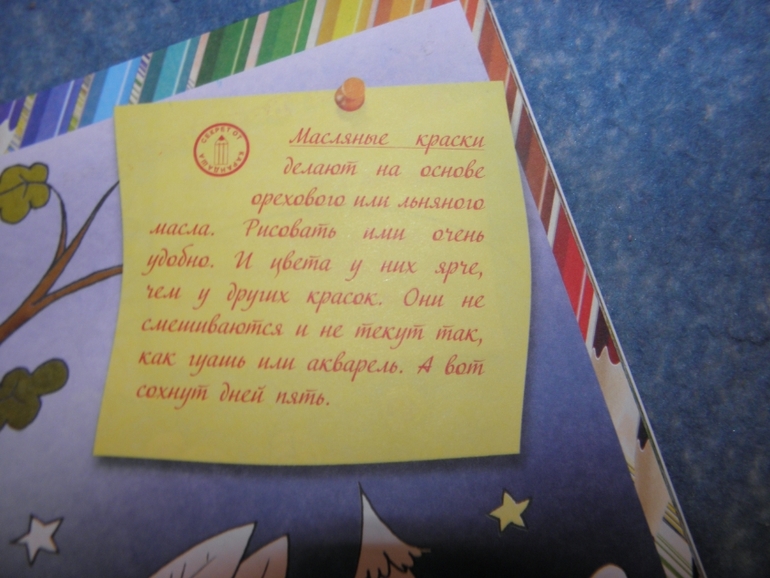 СЕКРЕТ ОТ
КАРАНДАША
Масляные краски
делают на основе
орехового или льняного
масла. Рисовать ими очень
удобно. И цвета у них ярче,
чем у других красок. Они не
смешиваются и не текут так,
как гуашь или акварель. А вот
сохнут дней пять.